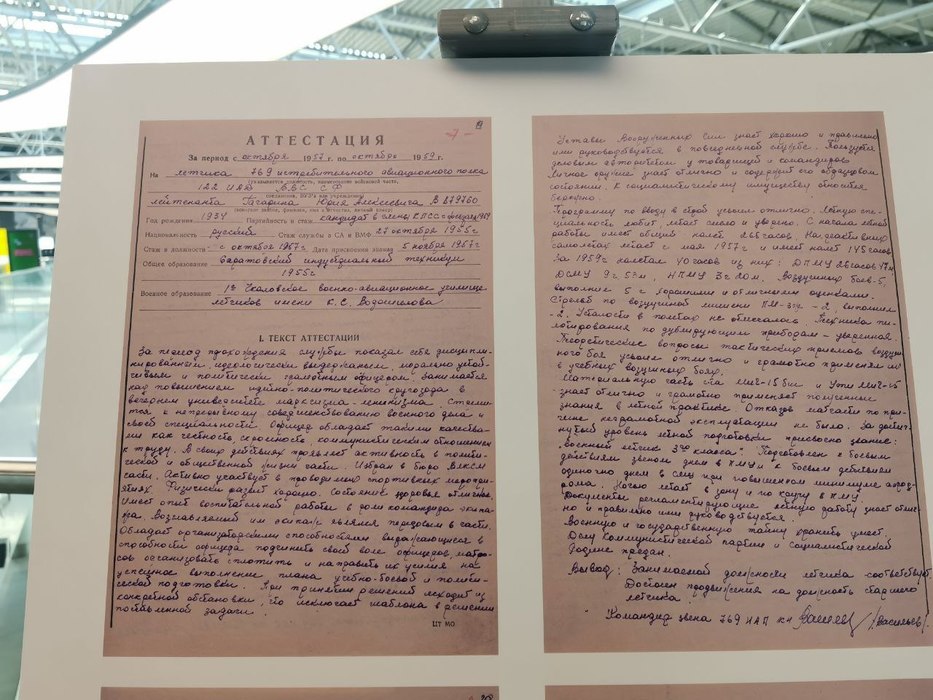 АТТЕСТАЦИЯ
За период с октября 1957 г. по октября 1959 г.
На летчика 769 истребительного авиационного полка
122 ИАД ВВС СФ
лейтенанта Гагарина Юрия Алексеевича
Год рождения 1934 Партийность и стаж кандидат в члены КПСС с
Национальность русский Стаж службы в СА и ВМФ 27 октября 1955 г.
Стаж в должности с октября 1957 г. Дата присвоения звания 5 ноября 1957 г
Общее образование Саратовский индустриальный техникум
1955 г.
Военное образование 1е Чкаловское военно-авиационное училище
летчиков имени К. Е. Ворошилова
I. ТЕКСТ АТТЕСТАЦИИ
За период прохождения службы показал себя дисципли-
нированным, идеологически выдержанным, морально устой-
чивым и политически грамотным офицером. Занимается
над повышением идейно-политического кругозора в
вечернем университете марксизма-ленинизма. Стремит-
ся к непрерывному совершенствованию военного дела и
своей специальности. Офицер обладает такими качества-
ми как честность, скромность, коммунистическим отношением
к труду. В своих действиях проявляет активность в полити-
ческой и общественной жизни части. Избран в бюро ВЛКСМ
части. Активно участвует в проводимых спортивных меропри-
ятиях. Физически развит хорошо. Состояние здоровья отличное.
Имеет опыт воспитательной работы в роли командира экипа-
жа. Возглавляемый им экипаж являлся передовым в части.
Обладает организаторскими способностями выражающимися в
способности офицера подчинить своей воле офицеров, матро-
сов организовать сплотить и направить их усилия на
успешное выполнение плана учебно-боевой и полити-
ческой подготовки. При принятии решений исходит из
конкретной обстановки, что исключает шаблона в решении
поставленной задачи.
ЦТ МО
Уставы Вооруженных Сил знает хорошо и правильно
ими руководствуется в повседневной службе. Пользуется
деловым авторитетом у товарищей и командиров.
Личное оружие знает отлично и содержит его в образцовом
состоянии. К социалистическому имуществу относится
бережно.
Программу по вводу в строй усвоил отлично. Летную спе-
циальность любит, летает смело и уверенно. С начала летной
работы имеет общий налет 265 часов. На реактивных
самолетах летает с мая 1957 г и имеет налет часов
За 1959 г налетал часов из них: ДПМУ
ДСМУ 9 ч 5 НПМУ 3 ч 20 м, Воздушных боев-5,
выполнил 5 с хорошими и отличными оценками.
Стрельб по воздушной мишени - 2, выполнил
- 2. Усталости в полетах не отмечалось. Техника пи-
лотирования по дублирующим приборам - уверенная
Теоретические вопросы тактических приемов воздуш-
ного боя усвоил отлично и грамотно применял их
в учебных воздушных боях.
Материальную часть с-та МИГ-15 бис и Ути МИГ-15
знает отлично и грамотно применяет полученные
знания в летной практике. Отказов матчасти по при-
чине неграмотной эксплуатации не было. За достиг-
нутый уровень летной подготовки присвоено звание:
"военный летчик 3го класса". Подготовлен к боевым
действиям звеном днем в ПМУ и к боевым действиям
одиночно днем в СМУ при повышенном минимуме аэрод-
рома. Ночью летает в зону и по кругу в ПМУ
Документы регламентирующие летную работу знает отлич-
но и правильно ими руководствуется.
Военную и государственную тайну хранить умеет.
Делу Коммунистической партии и Социалистической
Родине предан.
Вывод: Занимаемой должности летчика соответствует.
Достоин продвижения на должность старшего
летчика.
Командир звена 769 ИАП к-н /Васильев/